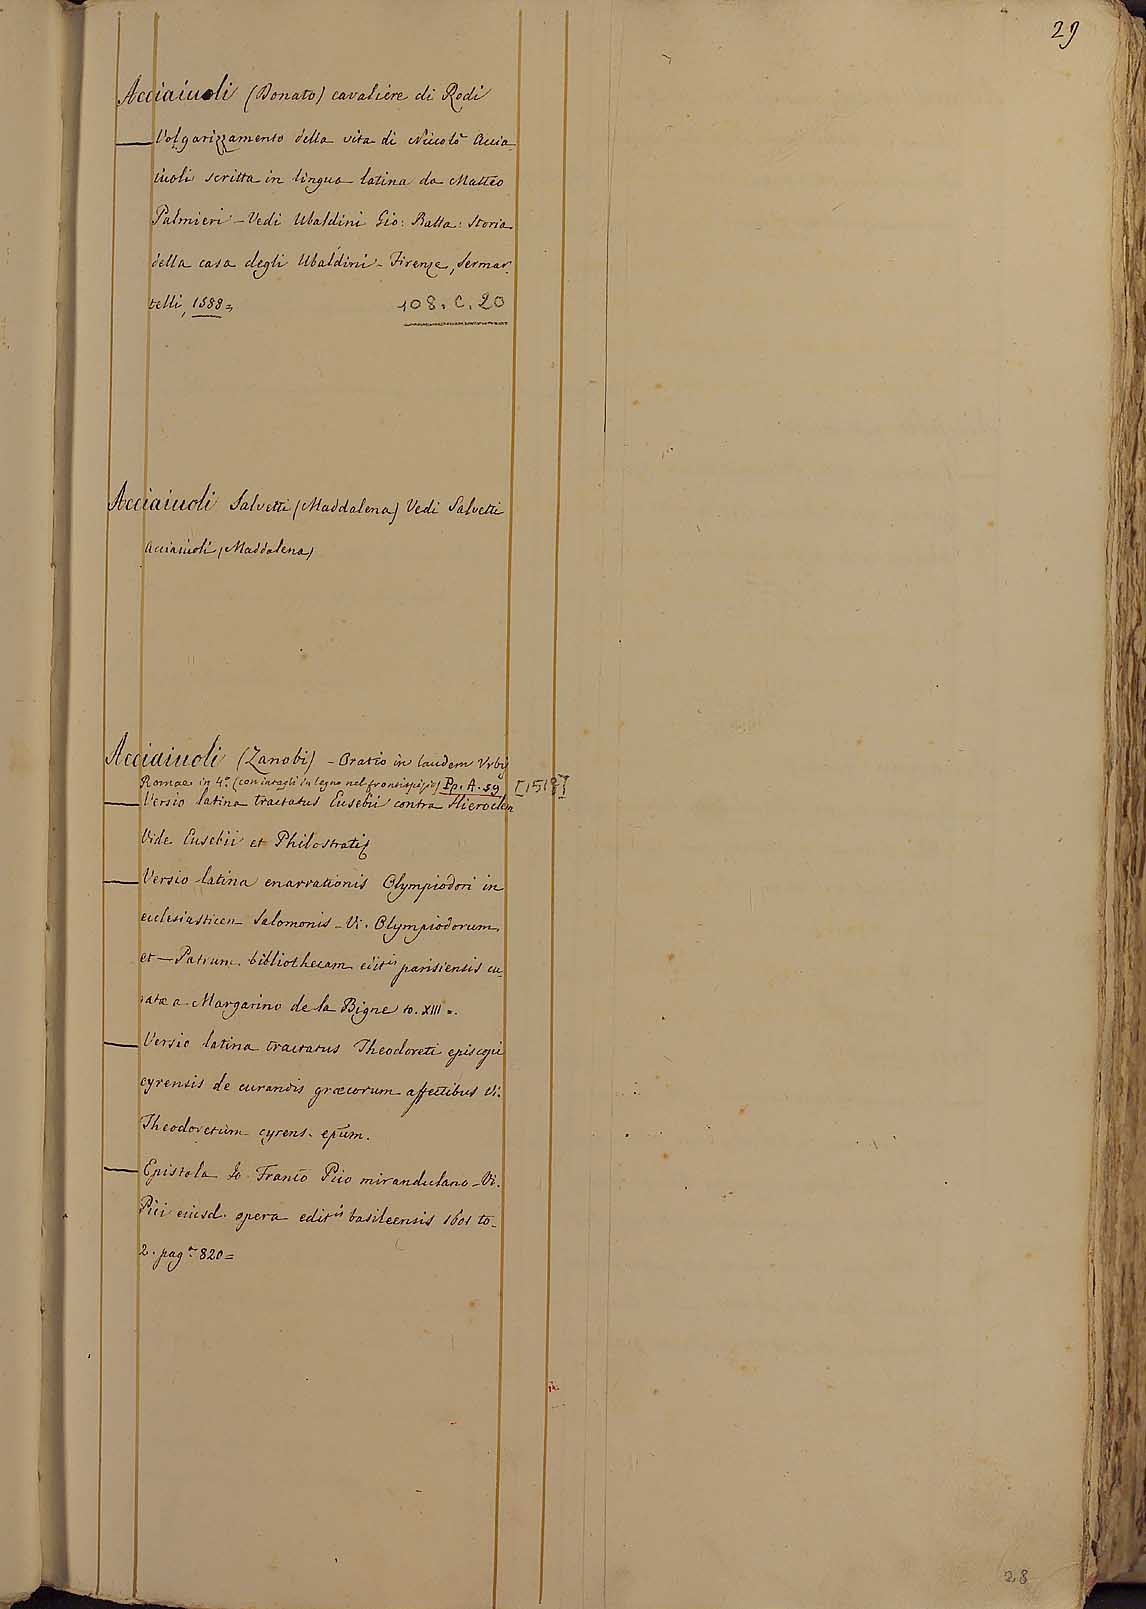 29
Acciaiuoli (Donato) cavaliere di Rodi
— Volgarizzamento della vita di Niccolò Accia-
iuoli scritta in lingua latina da Matteo
Palmieri - Vedi Ubaldini Gio: Batta: Storia
della casa degli Ubaldini - Firenze, Sermar-
telli, 1588 = 108. C. 20
Acciaiuoli Salvetti (Maddalena) Vedi Salvetti
Acciaiuoli (Maddalena)
Acciaiuoli (Zanobi) - Oratio in laudem Vrbis
Romae in 4.° (con intagli in legno nel frontispizio) Pp. A. 59 [1518]
— Versio latina tractatus Eusebii contra Hieroclem
Vide Eusebii et Philostratis
— Versio latina enarrationis Olympiodori in
ecclesiasticen Salomonis - Vi. Olympiodorum
et — Patrum bibliothecam edit.is parisiensis cu-
ratæ a Margarino de la Bigne to. XIII =.
— Versio latina tractatus Theodoreti episcopi
cyrensis de curandis græcorum affectibus Vi.
Theodoretum cyrens. epum.
— Epistola Jo. Franco Pico mirandulano - Vi.
Pici eiusd. opera edit.is basileensis 1601 to-
2. pag.a 820 =
28